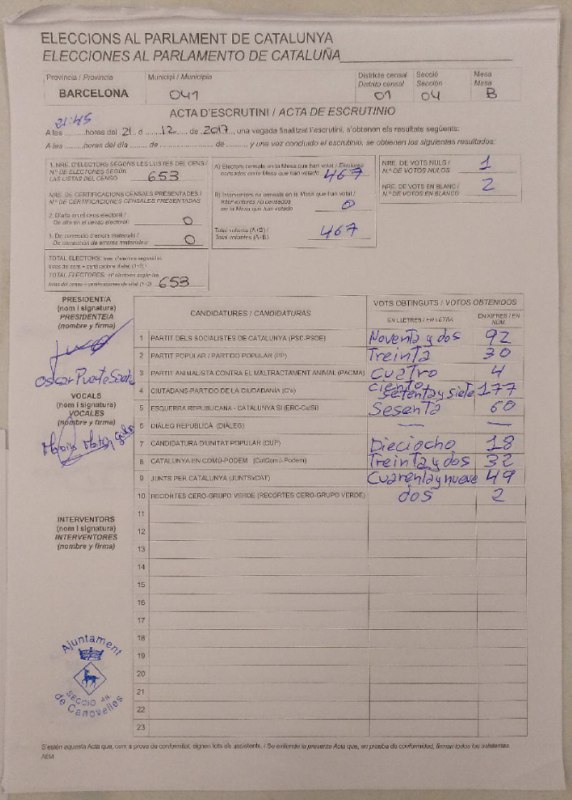 ELECCIONS AL PARLAMENT DE CATALUNYA
ELECCIONES AL PARLAMENTO DE CATALUÑA
Província / Provincia
BARCELONA
Municipi / Municipio
041
Districte censal
Distrito censal
01
Secció
Sección
04
Mesa
Mesa
B
ACTA D'ESCRUTINI / ACTA DE ESCRUTINIO
A les 21:45 hores del 21 d 12 de 2017, una vegada finalitzat l'escrutini, s'obtenen els resultats següents:
A las horas del día de de y una vez concluido el escrutinio, se obtienen los siguientes resultados:
1. NRE. D'ELECTORS SEGONS LES LLISTES DEL CENS /
N.º DE ELECTORES SEGÚN
LAS LISTAS DEL CENSO
653
NRE. DE CERTIFICACIONS CENSALS PRESENTADES /
N.º DE CERTIFICACIONES CENSALES PRESENTADAS
2. D'alta en el cens electoral /
De alta en el censo electoral
0
3. De correcció d'errors materials /
De corrección de errores materiales
0
TOTAL ELECTORS:
TOTAL ELECTORES:
653
A) Electors censats en la Mesa que han votat / Electores
censados en la Mesa que han votado
467
B) Interventors no censats en la Mesa que han votat /
Interventores no censados
en la Mesa que han votado
0
Total votants (A+B) /
Total votantes (A+B)
467
NRE. DE VOTS NULS /
N.º DE VOTOS NULOS
1
NRE. DE VOTS EN BLANC /
N.º DE VOTOS EN BLANCO
2
PRESIDENT/A
(nom i signatura)
PRESIDENTE/A
(nombre y firma)
VOCALS
(nom i signatura)
VOCALES
(nombre y firma)
INTERVENTORS
(nom i signatura)
INTERVENTORES
(nombre y firma)
CANDIDATURES / CANDIDATURAS
VOTS OBTINGUTS / VOTOS OBTENIDOS
EN LLETRES / EN LETRA
EN XIFRES / EN NÚM.
1 PARTIT DELS SOCIALISTES DE CATALUNYA (PSC-PSOE) Noventa y dos 92
2 PARTIT POPULAR / PARTIDO POPULAR (PP) Treinta 30
3 PARTIT ANIMALISTA CONTRA EL MALTRACTAMENT ANIMAL (PACMA) Cuatro 4
4 CIUTADANS-PARTIDO DE LA CIUDADANÍA (C's) ciento setenta y siete 177
5 ESQUERRA REPUBLICANA - CATALUNYA SÍ (ERC-CatSí) Sesenta 60
6 DIÀLEG REPÚBLICA (DIÀLEG) — —
7 CANDIDATURA D'UNITAT POPULAR (CUP) Dieciocho 18
8 CATALUNYA EN COMÚ-PODEM (CatComú-Podem) Treinta y dos 32
9 JUNTS PER CATALUNYA (JUNTSxCAT) Cuarenta y nueve 49
10 RECORTES CERO-GRUPO VERDE (RECORTES CERO-GRUPO VERDE) dos 2
11
12
13
14
15
16
17
18
19
20
21
22
23
Ajuntament
de Canovelles
S'estén aquesta Acta que, com a prova de conformitat, signen tots els assistents. / Se extiende la presente Acta que, en prueba de conformidad, firman todos los asistentes.